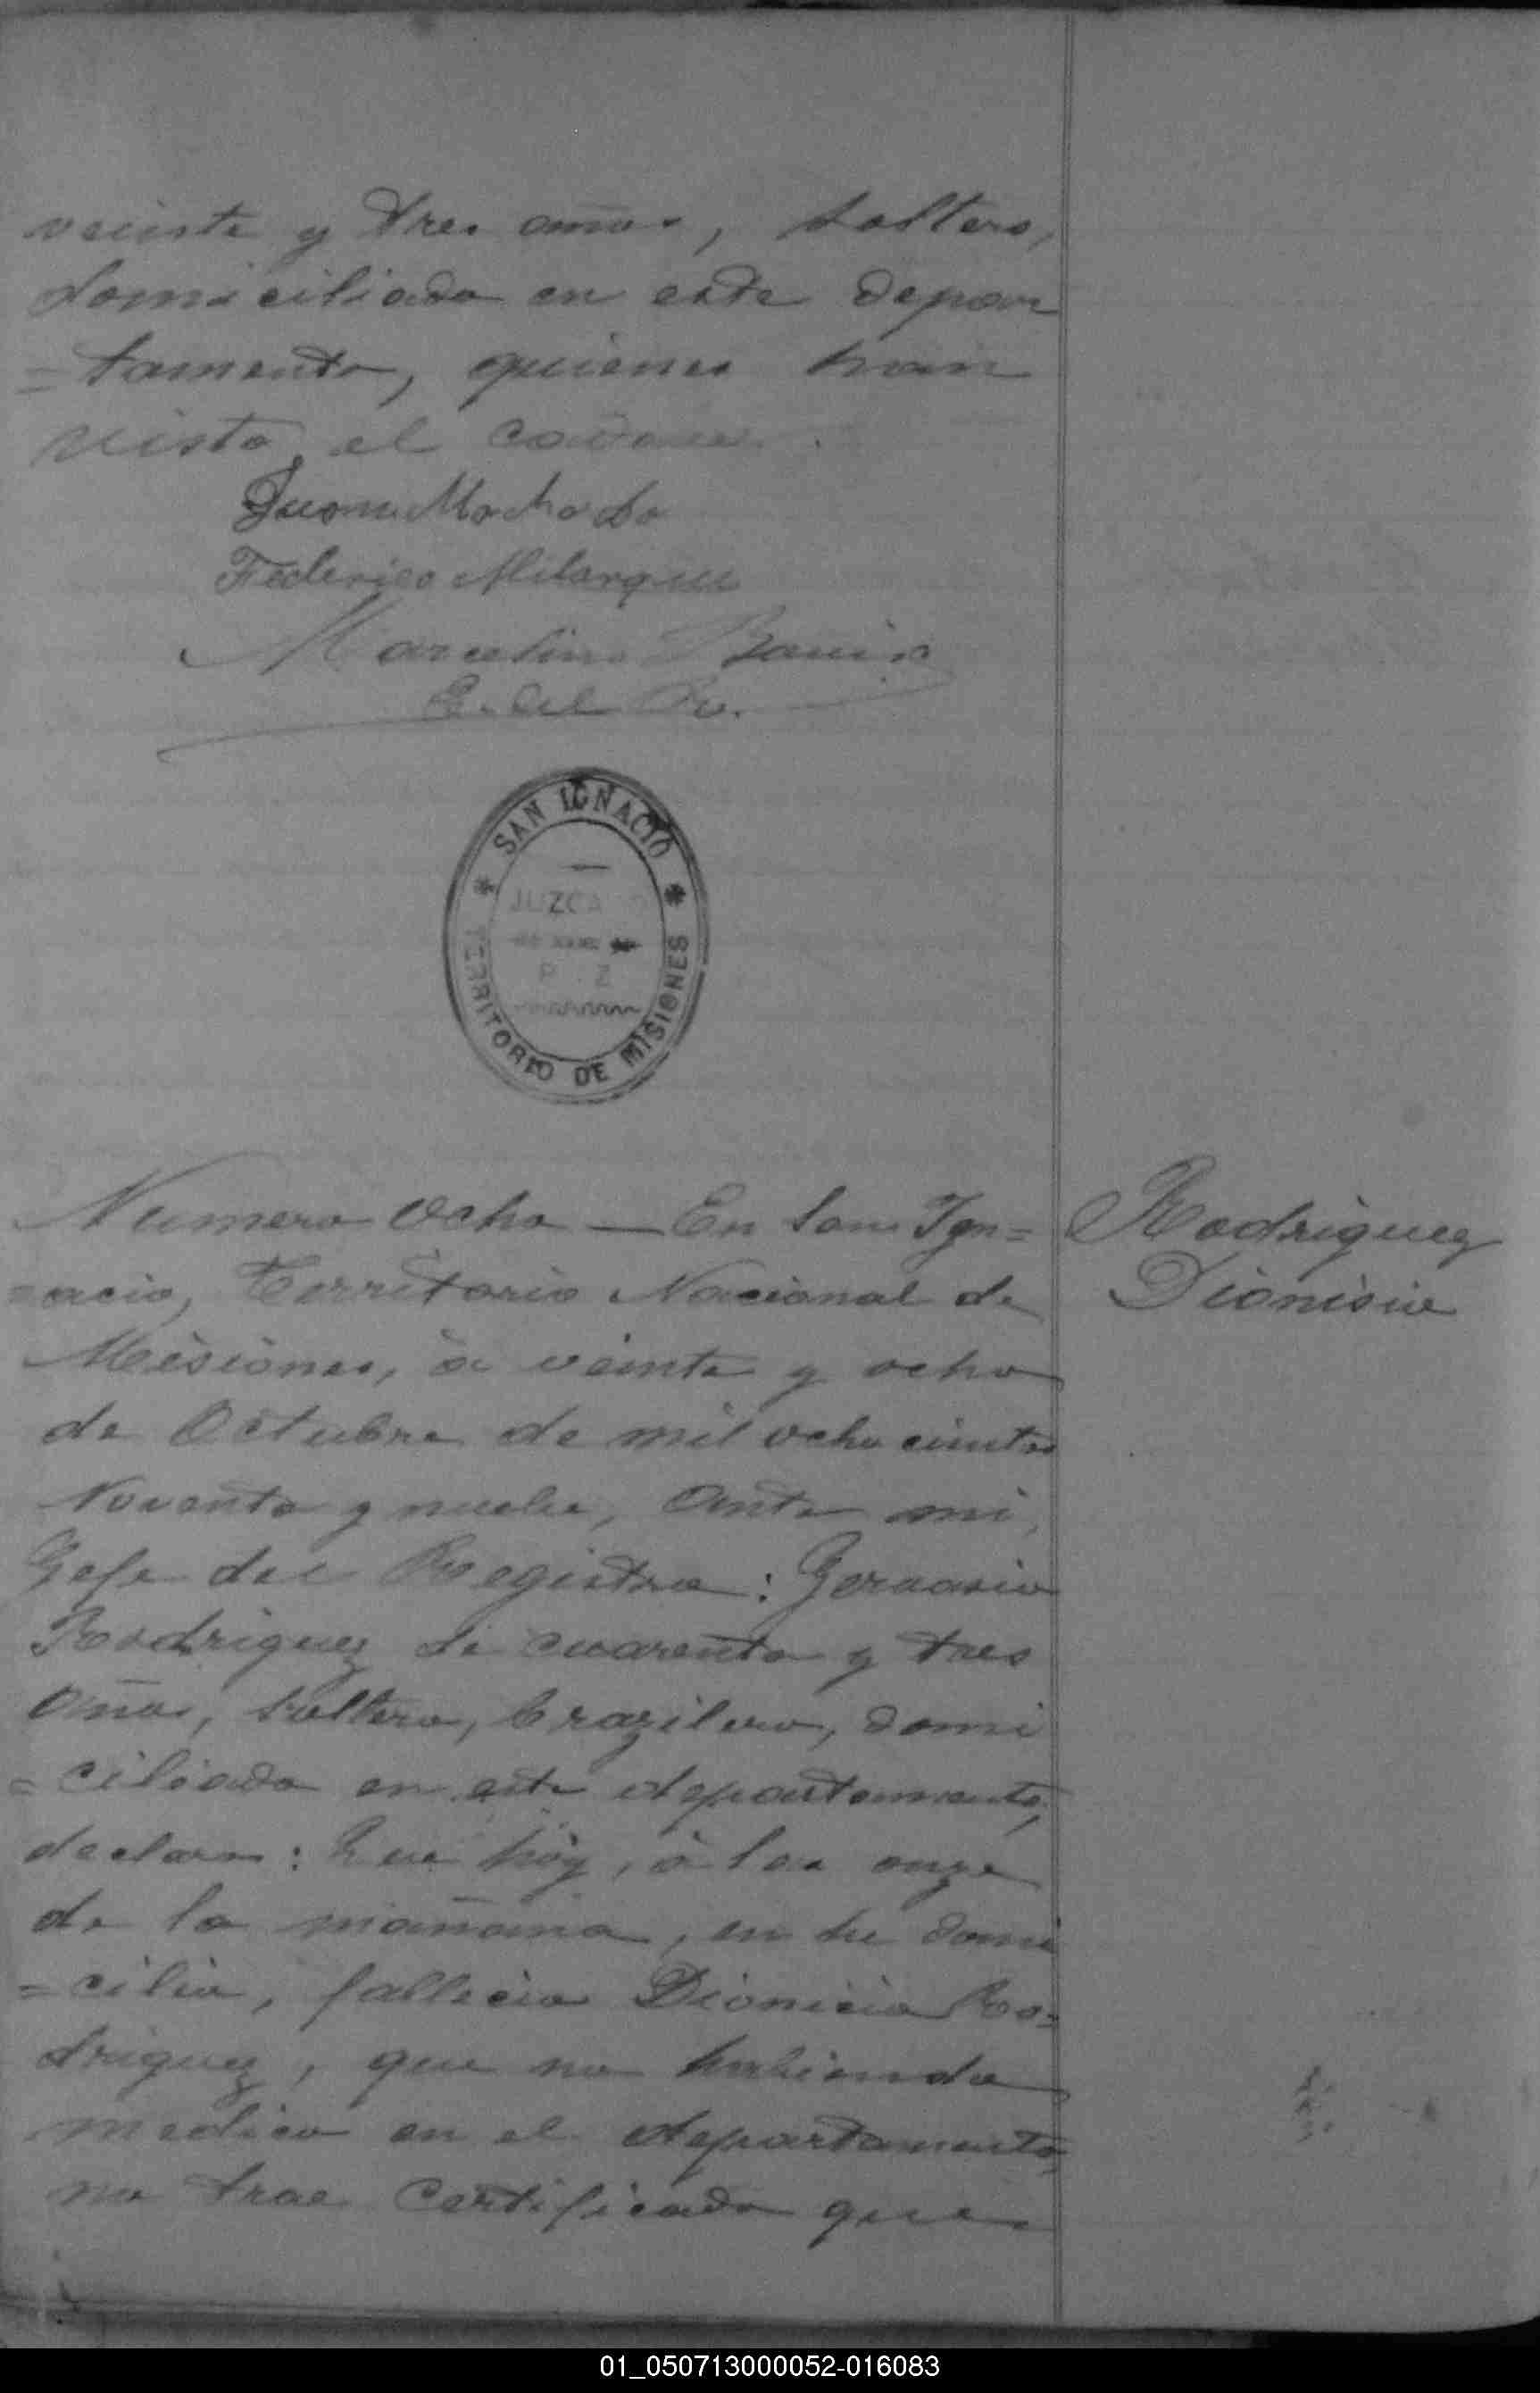 veinte y tres años, soltero,
domiciliado en este depar
=tamento, quienes han
visto el cadaver.
Juan Machado
Federico
Marcelino
E. del R.
SAN IGNACIO
JUZGA
P Z
TERRITORIO DE MISIONES
Numero Ocho — En San Ign=
=acio, Territorio Nacional de
Misiones, à veinte y ocho
de Octubre de mil ochocientos
Noventa y nueve, Ante mi,
Gefe del Registro: Gervasio
Rodriguez de cuarenta y tres
años, soltero, brazilero, domi
=ciliado en este departamento,
declaro: Que hoy, à las onze
de la mañana, en su domi
=cilio, fallecio Dionicio Ro=
driguez, que no habiendo
medico en el departamento,
no trae certificado que
Rodriguez
Dionisio
01_050713000052-016083